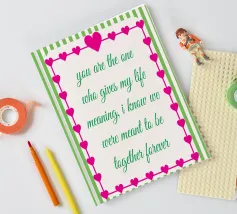 you are the one
who gives my life
meaning, i know we
were meant to be
together forever